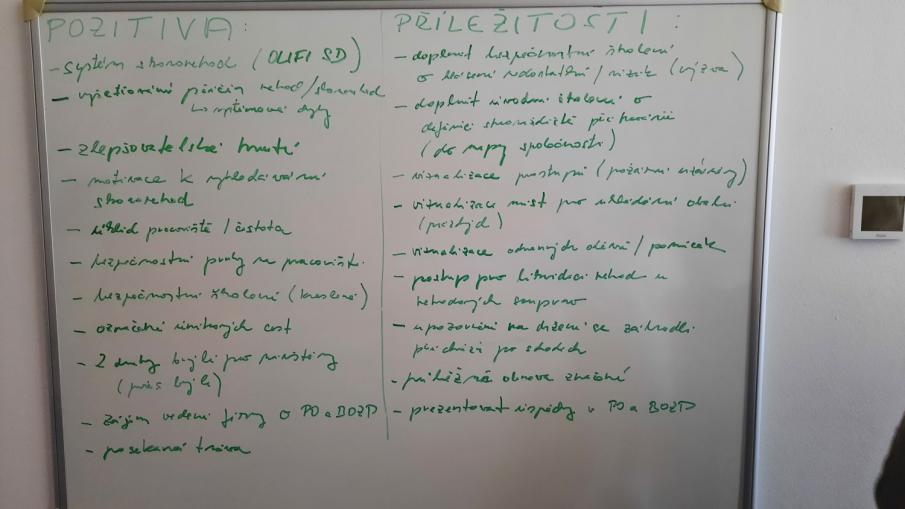 POZITIVA:
– systém skoronehod (OLIFI SD)
– vyšetřování příčin nehod/skoronehod
↳ systémové chyby
– zlepšovatelské hnutí
– motivace k vyhledávání
skoronehod
– úklid pracoviště / čistota
– bezpečnostní prvky na pracovišti
– bezpečnostní školení (kreslené)
– označení únikových cest
– 2 druhy brýlí pro návštěvy
(přes brýle)
– zájem vedení firmy o PO a BOZP
– posekaná tráva
PŘÍLEŽITOSTI:
– doplnit bezpečnostní školení
o hlášení nedostatků / rizik (výzva)
– doplnit úvodní školení o
definici shromaždiště při havárii
(do mapy společnosti)
– vizualizace postupů (požární útvary)
– vizualizace míst pro ukládání obalů
(prázdných)
– vizualizace ochranných oděvů / pomůcek
– postup pro likvidaci nehod u
nehodových souprav
– upozornění na držení se zábradlí
při chůzi po schodech
– průběžná obnova značení
– prezentovat úspěchy v PO a BOZP